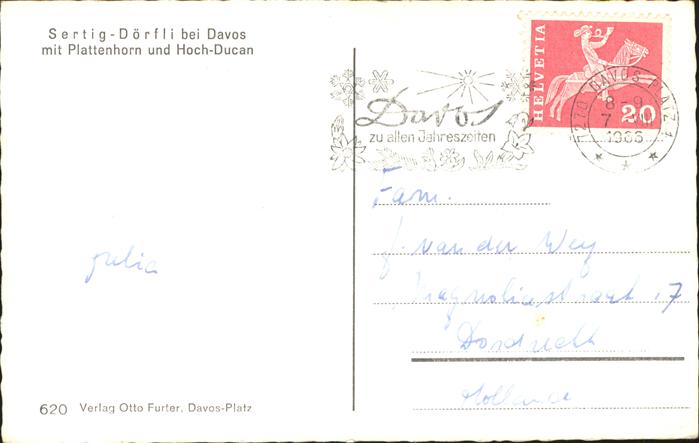 Sertig-Dörfli bei Davos
mit Plattenhorn und Hoch-Ducan
Davos
zu allen Jahreszeiten
HELVETIA
20
7270 DAVOS PLATZ 1
8-9
7
1966
Fam.
J. van der Wey
Magnoliastraat 17
Dordrecht
Holland
620 Verlag Otto Furter, Davos-Platz